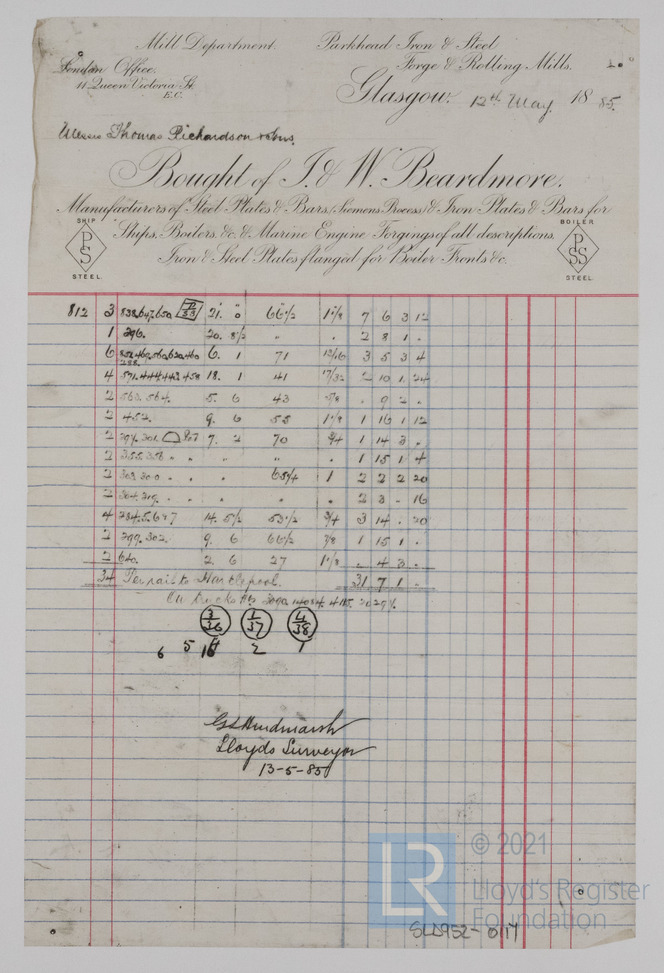 Mill Department. Parkhead Iron & Steel
London Office. Forge & Rolling Mills.
11 Queen Victoria St.
E.C.
Glasgow. 12th May 1885.
Messrs Thomas Richardson & Sons.
Bought of I. & W. Beardmore.
Manufacturers of Steel Plates & Bars, (Siemens Process) & Iron Plates & Bars for
Ships, Boilers, &c. & Marine Engine Forgings of all descriptions.
Iron & Steel Plates flanged for Boiler Fronts &c.
SHIP
PS
STEEL.
BOILER
PSS
STEEL.
812 3 838,647,650 21. 0 66 1/2 1 1/8 7 6 3 12
1 296. 20. 8 1/2 " " 2 8 1 .
6 6. 1 71 13/16 3 5 3 4
258
4 571.444.442.458 18. 1 41 17/32 2 10 1 24
2 563. 564. 5. 6 43 5/8 . 9 2 .
2 452. 9. 6 55 1 1/8 1 16 1 12
2 297. 301. 7. 2 70 3/4 1 14 3 .
2 355.358 " " " " " 1 15 1 4
2 303.300 " " . . 65 1/4 1 2 2 2 20
2 304. . . . " " 2 3 - 16
4 284.5.6 & 7 14. 5 1/2 53 1/2 3/4 3 14 . 20
2 299. 302. 9. 6 66 1/2 7/8 1 15 1 .
2 640. 2. 6 27 1 1/8 . 4 3 .
34 Per rail to Hartlepool. 31 7 1 .
On trucks
3/36 1/37 4/38
6 5 2 1
G S Hindmarsh
Lloyds Surveyor
13-5-85
LR
© 2021
Lloyd's Register
Foundation
SLD952-0117